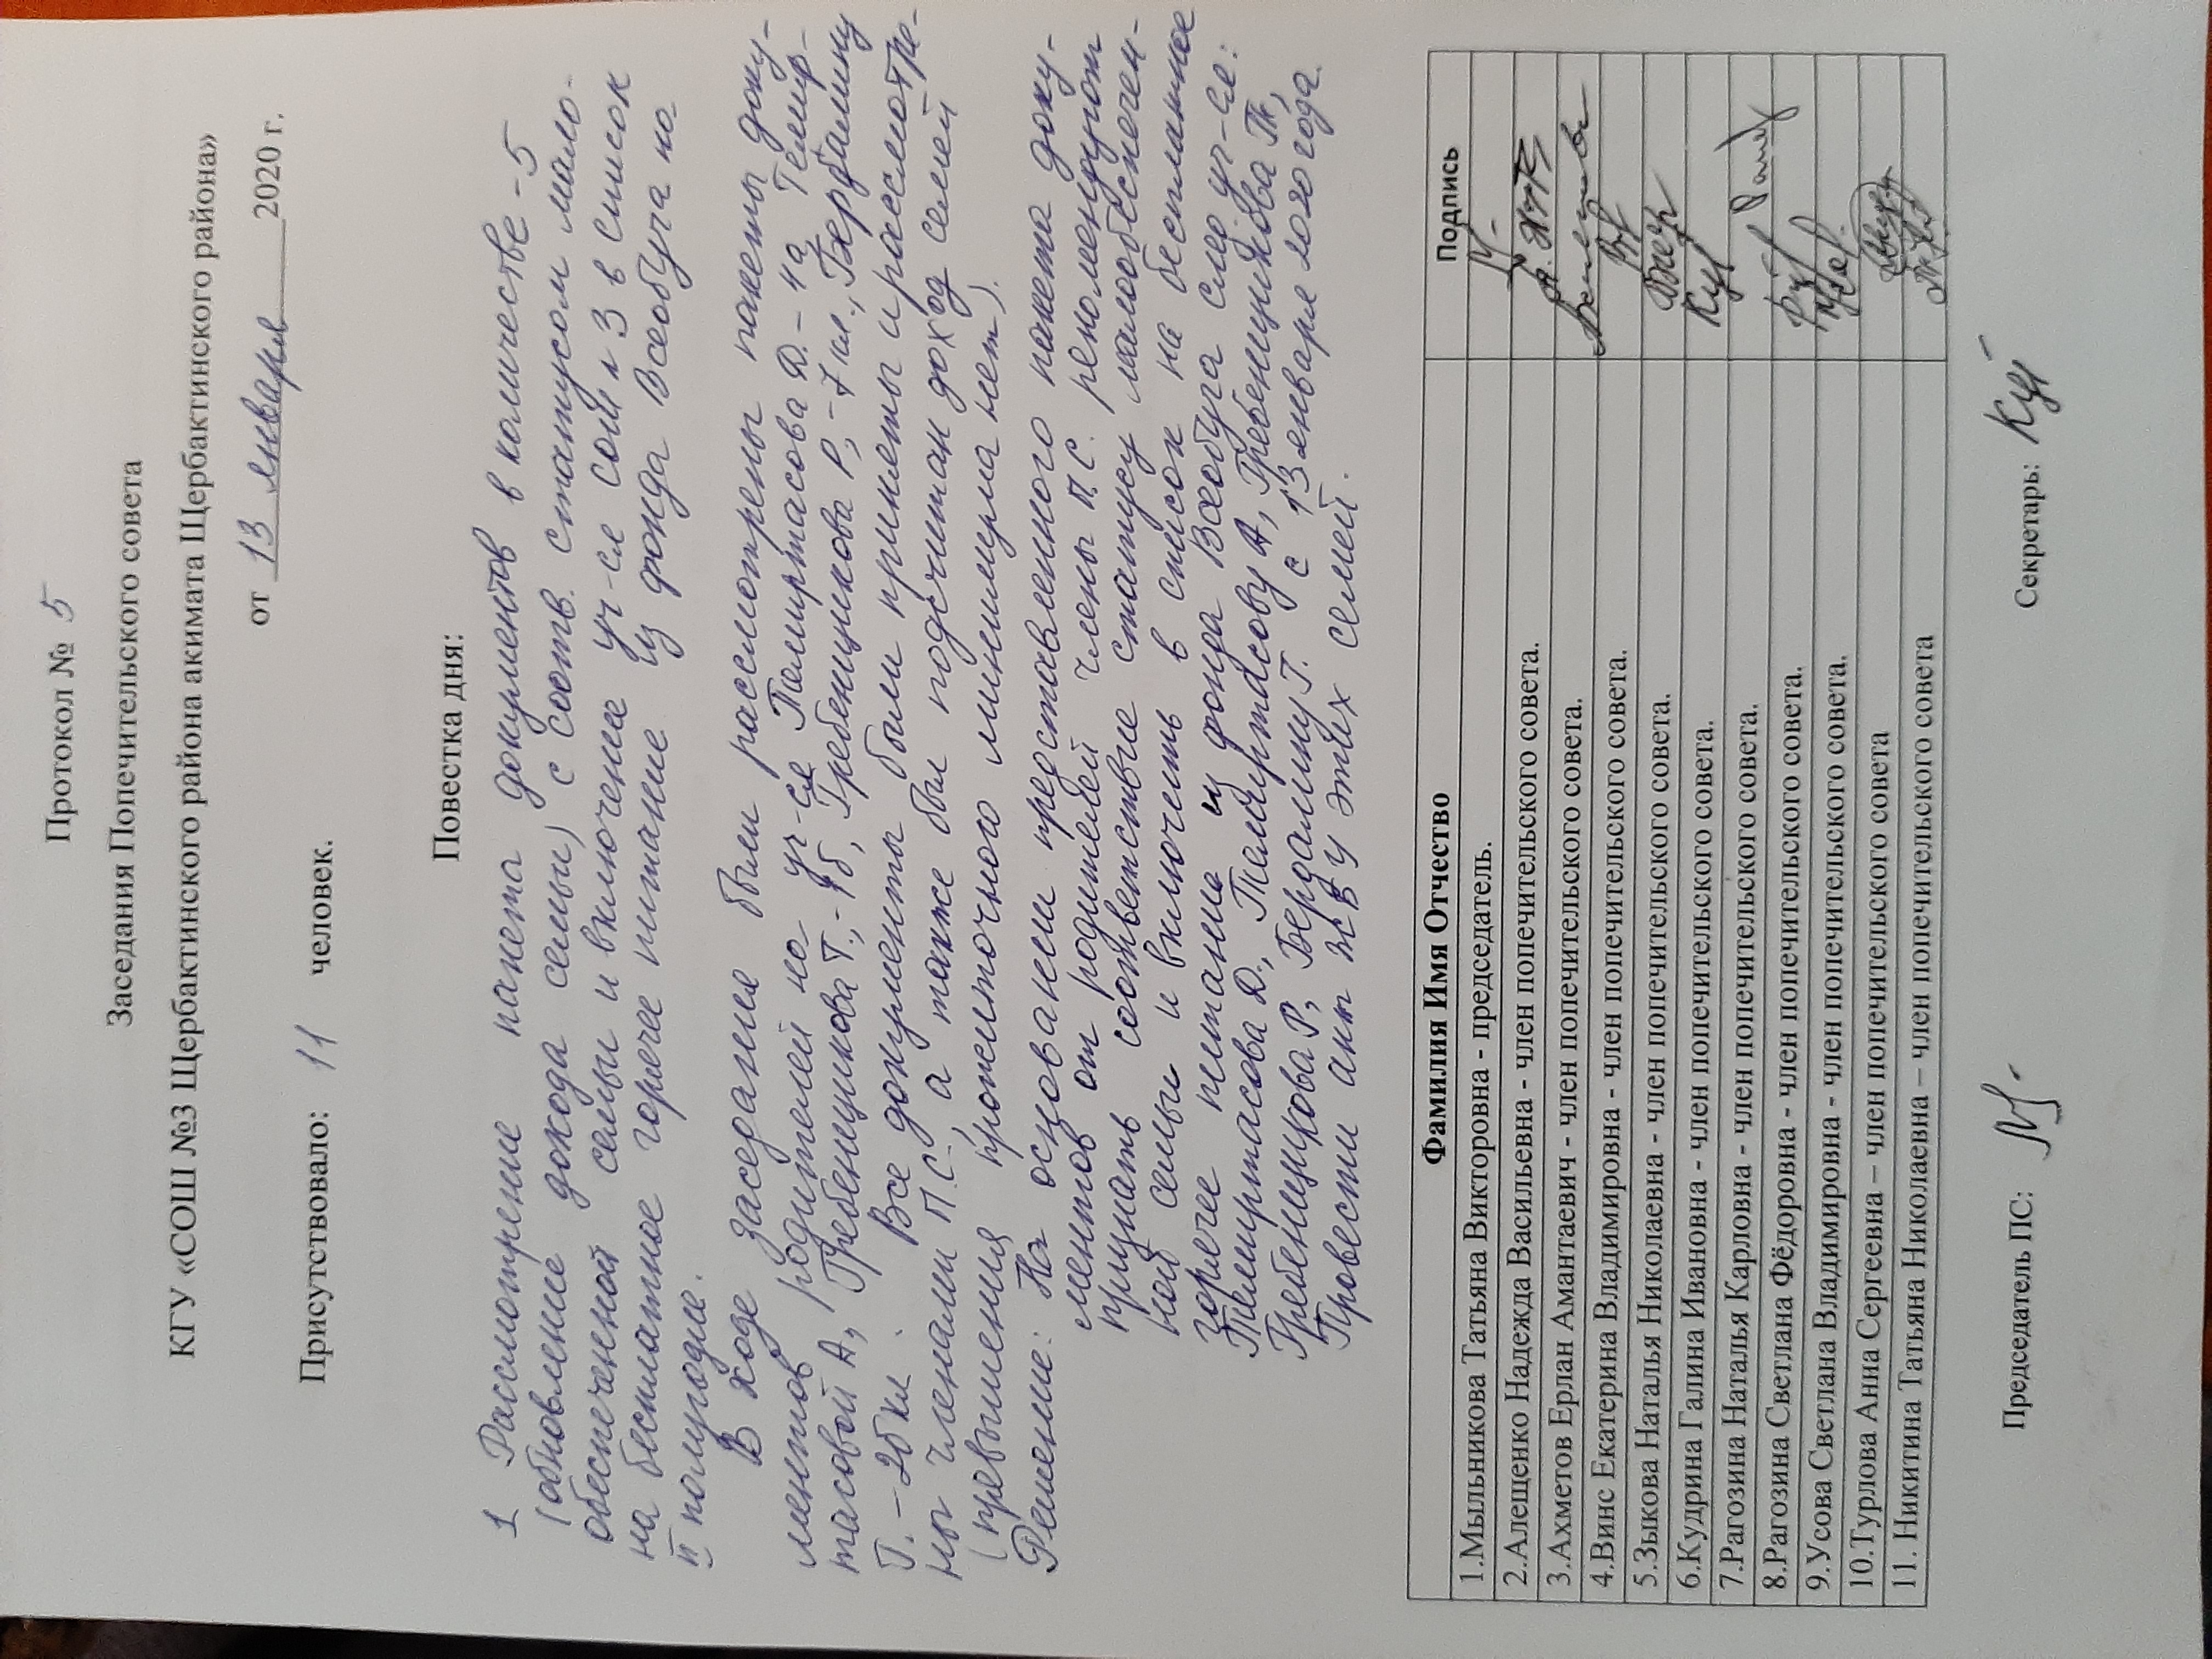 Протокол № 5
Заседания Попечительского совета
КГУ «СОШ №3 Щербактинского района акимата Щербактинского района»
от 13 января 2020 г.
Присутствовало: 11 человек.
Повестка дня:
1 Рассмотрение пакета документов в количестве - 5
(обновление дохода семьи) с соотв. статусом мало-
обеспеченной семьи и включение уч-ся СОШ №3 в список
на бесплатное горячее питание из фонда Всеобуча на
II полугодие.
В ходе заседания были рассмотрены пакеты доку-
ментов родителей на уч-ся Темиртасова Д. - 4а, Темир-
тасовой А, Гребенщикова Т., - 1б, Гребенщикова Р, - 7 кл., Бердалину
Т. - 2б кл. Все документы были приняты и рассмотре-
ны членами П.С., а также был подсчитан доход семей
(превышения прожиточного минимума нет).
Решение: На основании представленного пакета доку-
ментов от родителей члены П.С. рекомендуют
признать соответствие статусу малообеспечен-
ной семьи и включить в список на бесплатное
горячее питание из фонда Всеобуча след уч-ся:
Темиртасова Д., Темиртасову А, Гребенщикова Т,
Гребенщикова Р, Бердалину Т. с 13 января 2020 года.
Провести акт ЖБУ этих семей.
Фамилия Имя Отчество Подпись
1.Мыльникова Татьяна Викторовна - председатель.
2.Алещенко Надежда Васильевна - член попечительского совета.
3.Ахметов Ерлан Амантаевич - член попечительского совета.
4.Винс Екатерина Владимировна - член попечительского совета.
5.Зыкова Наталья Николаевна - член попечительского совета.
6.Кудрина Галина Ивановна - член попечительского совета.
7.Рагозина Наталья Карловна - член попечительского совета.
8.Рагозина Светлана Фёдоровна - член попечительского совета.
9.Усова Светлана Владимировна - член попечительского совета.
10.Турлова Анна Сергеевна – член попечительского совета
11. Никитина Татьяна Николаевна – член попечительского совета
Председатель ПС: Секретарь: